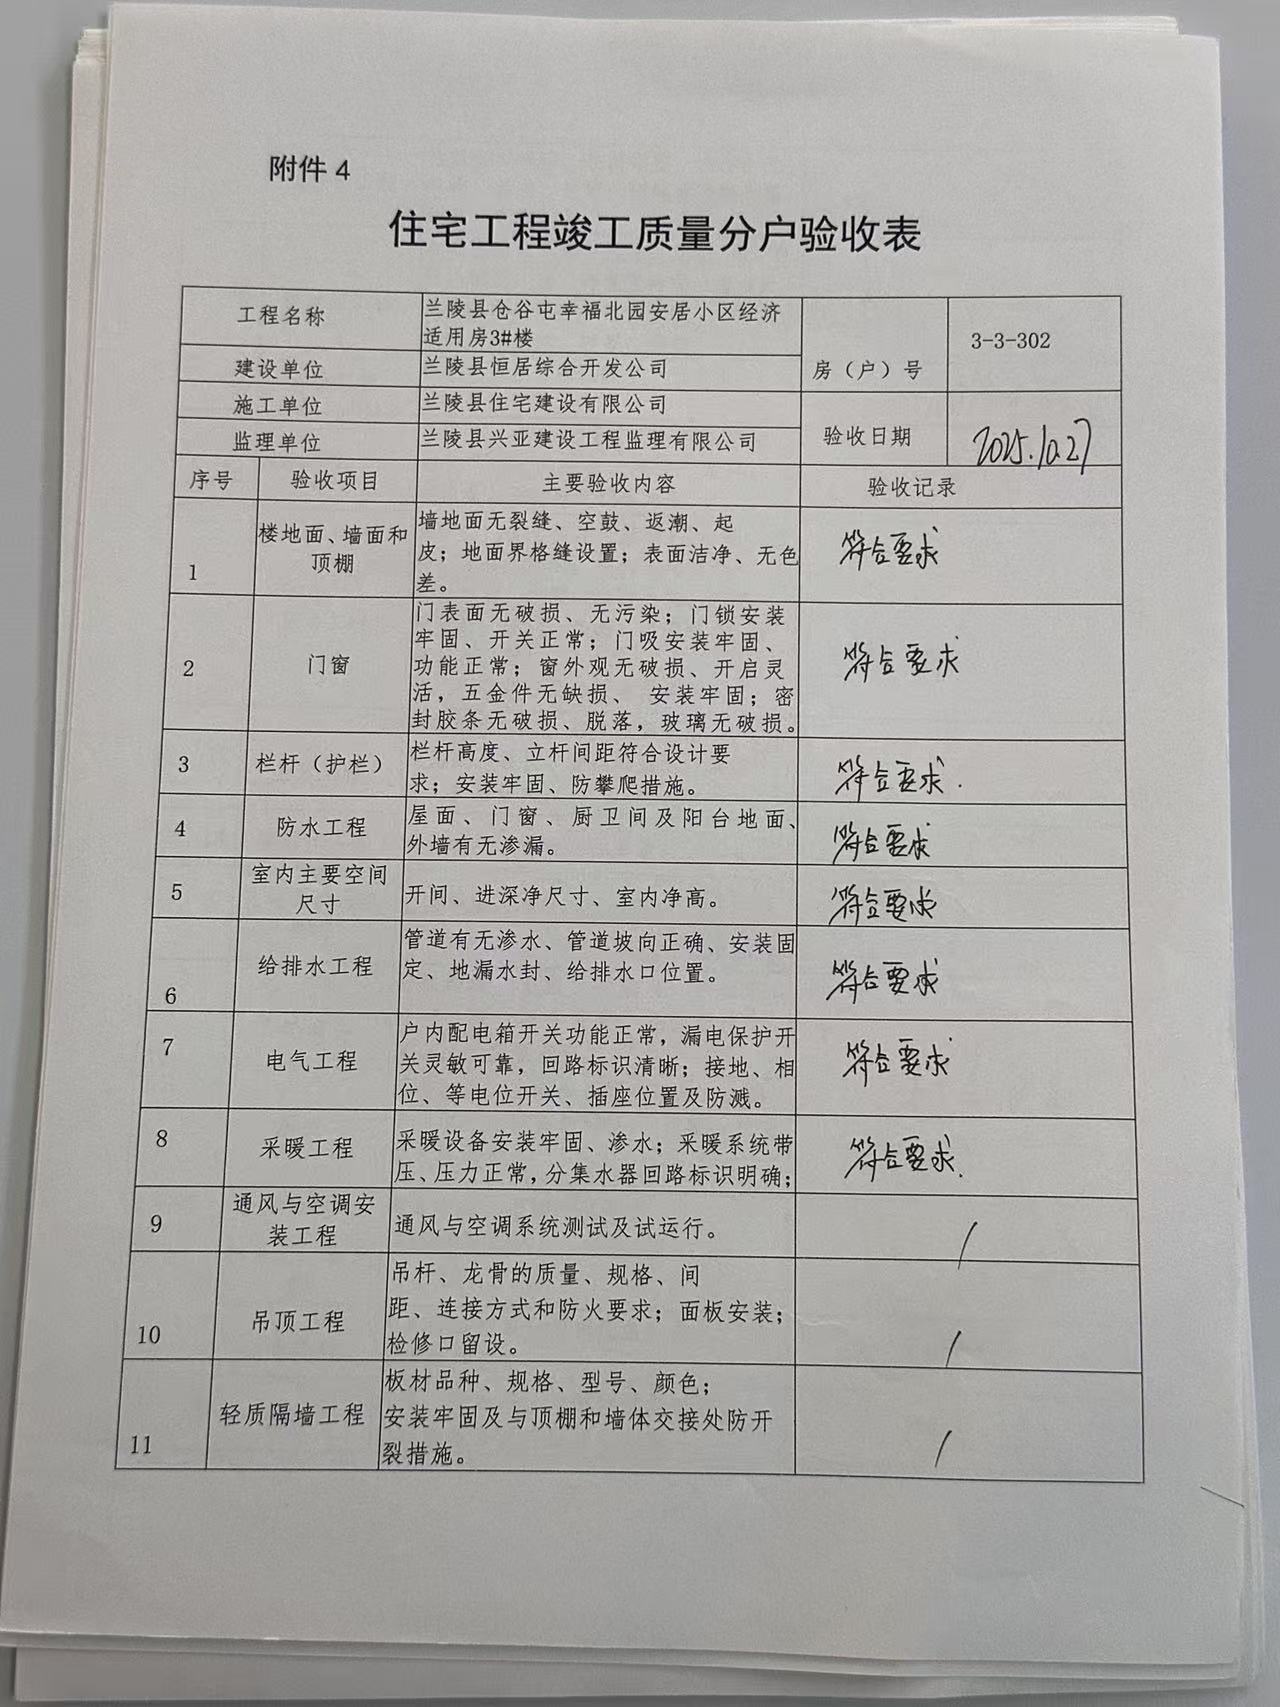 附件 4
住宅工程竣工质量分户验收表
工程名称
兰陵县仓谷屯幸福北园安居小区经济
适用房3#楼
房（户）号
3-3-302
建设单位
兰陵县恒居综合开发公司
施工单位
兰陵县住宅建设有限公司
验收日期
2025.10.27
监理单位
兰陵县兴亚建设工程监理有限公司
序号
验收项目
主要验收内容
验收记录
1
楼地面、墙面和
顶棚
墙地面无裂缝、空鼓、返潮、起
皮；地面界格缝设置；表面洁净、无色
差。
符合要求
2
门窗
门表面无破损、无污染；门锁安装
牢固、开关正常；门吸安装牢固、
功能正常；窗外观无破损、开启灵
活，五金件无缺损、 安装牢固；密
封胶条无破损、脱落，玻璃无破损。
符合要求
3
栏杆（护栏）
栏杆高度、立杆间距符合设计要
求；安装牢固、防攀爬措施。
符合要求.
4
防水工程
屋面、门窗、厨卫间及阳台地面、
外墙有无渗漏。
符合要求
5
室内主要空间
尺寸
开间、进深净尺寸、室内净高。
符合要求
6
给排水工程
管道有无渗水、管道坡向正确、安装固
定、地漏水封、给排水口位置。
符合要求
7
电气工程
户内配电箱开关功能正常，漏电保护开
关灵敏可靠，回路标识清晰；接地、相
位、等电位开关、插座位置及防溅。
符合要求
8
采暖工程
采暖设备安装牢固、渗水；采暖系统带
压、压力正常，分集水器回路标识明确；
符合要求.
9
通风与空调安
装工程
通风与空调系统测试及试运行。
/
10
吊顶工程
吊杆、龙骨的质量、规格、间
距、连接方式和防火要求；面板安装；
检修口留设。
/
11
轻质隔墙工程
板材品种、规格、型号、颜色；
安装牢固及与顶棚和墙体交接处防开
裂措施。
/